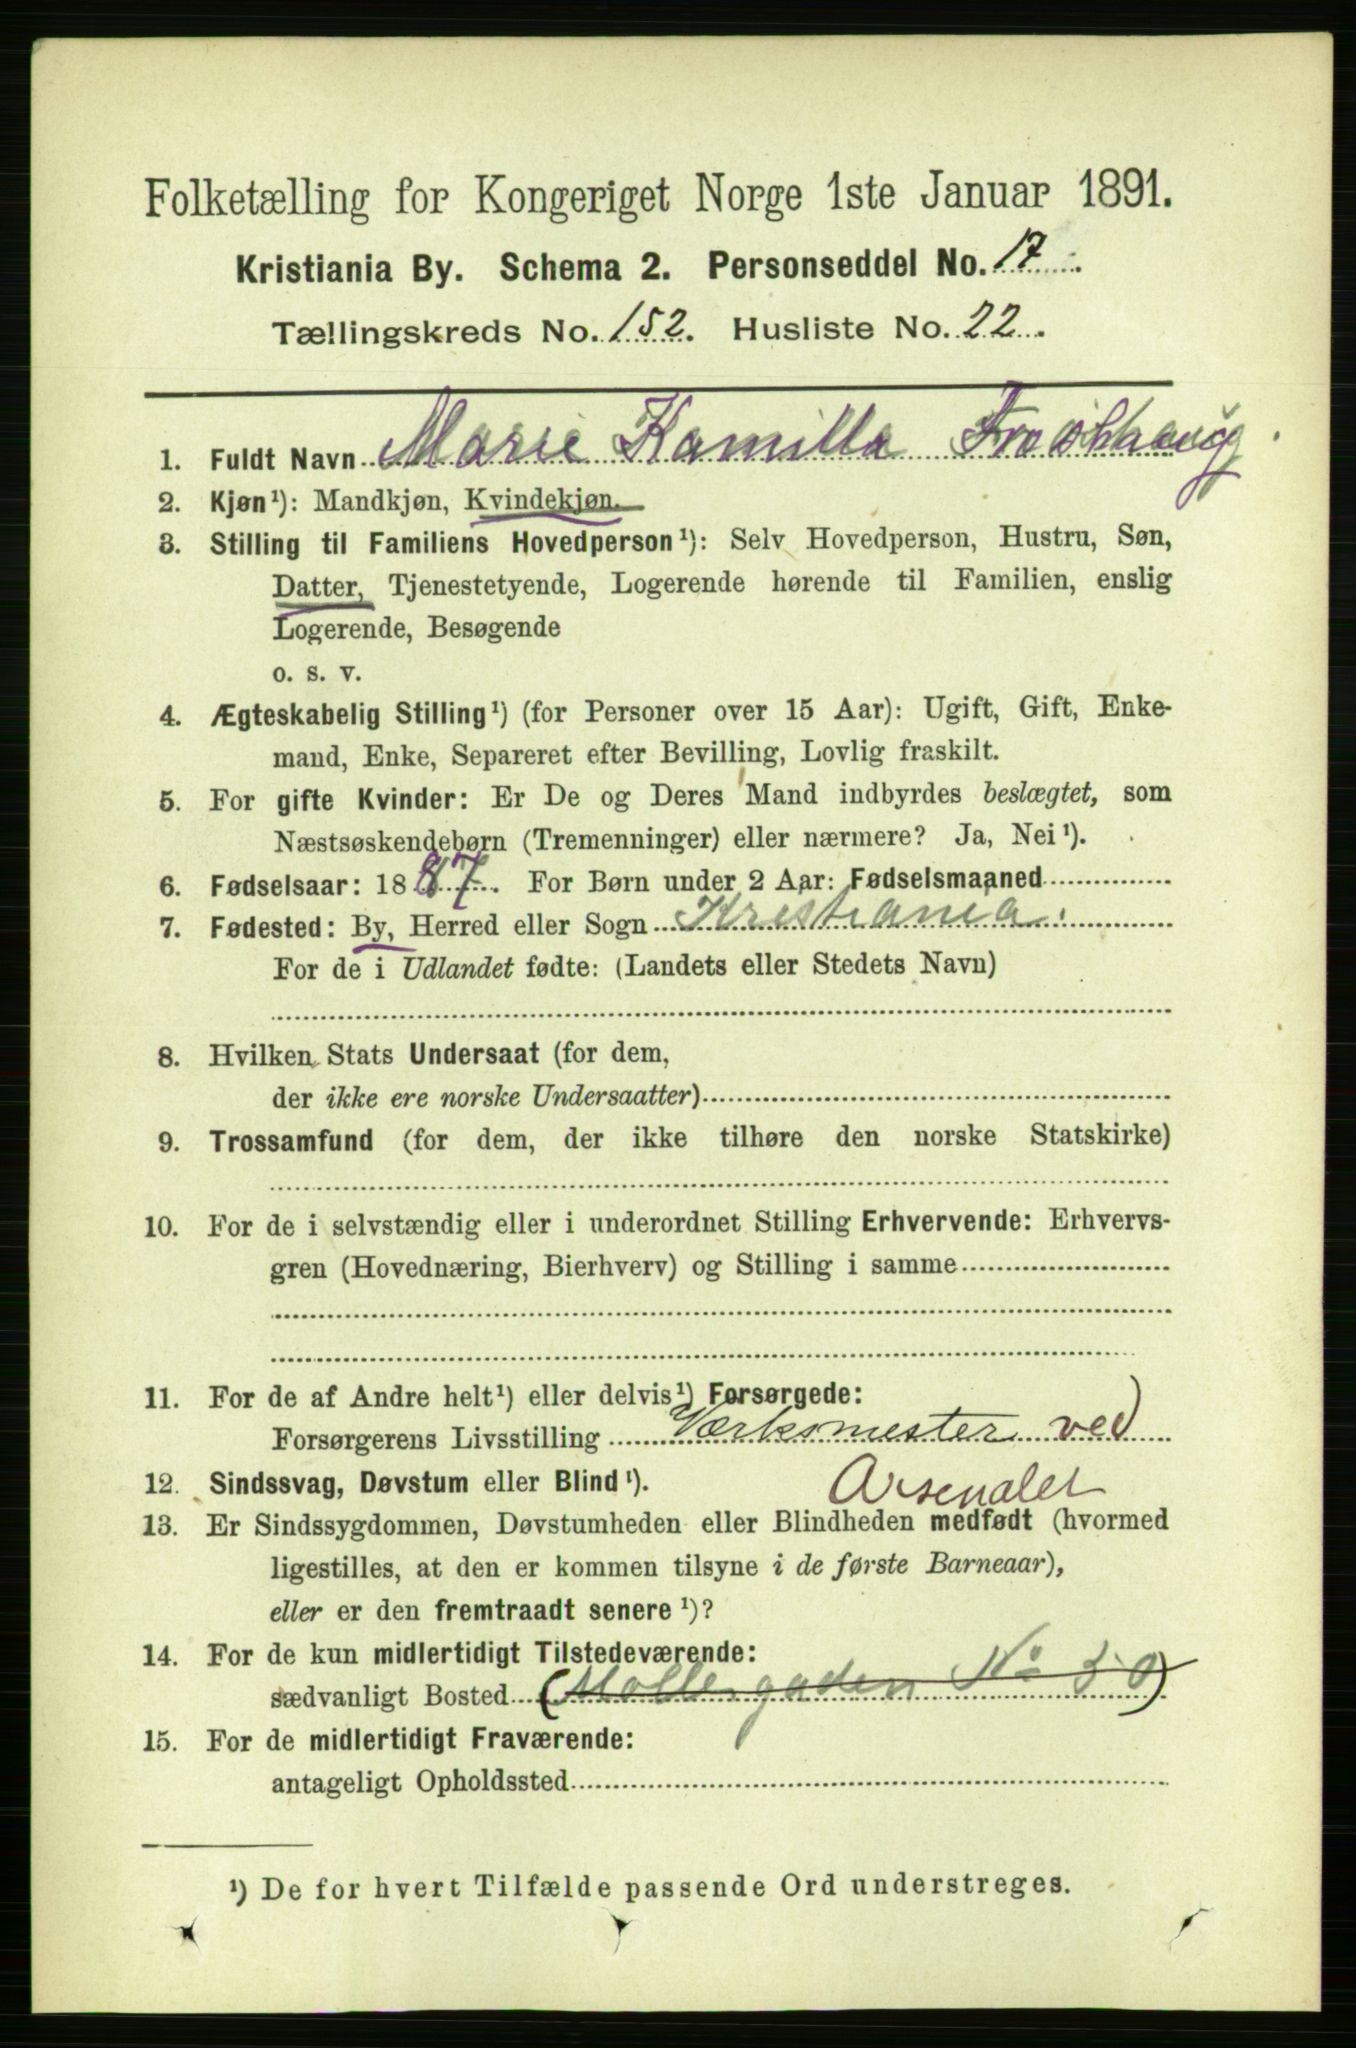 Folketælling for Kongeriget Norge 1ste Januar 1891.
Kristiania By. Schema 2. Personseddel No. 17
Tællingskreds No. 152. Husliste No. 22.
1. Fuldt Navn Marie Kamilla Froshaug
2. Kjøn¹): Mandkjøn, Kvindekjøn.
3. Stilling til Familiens Hovedperson¹): Selv Hovedperson, Hustru, Søn,
Datter, Tjenestetyende, Logerende hørende til Familien, enslig
Logerende, Besøgende
o. s. v.
4. Ægteskabelig Stilling¹) (for Personer over 15 Aar): Ugift, Gift, Enke-
mand, Enke, Separeret efter Bevilling, Lovlig fraskilt.
5. For gifte Kvinder: Er De og Deres Mand indbyrdes beslægtet, som
Næstsøskendebørn (Tremenninger) eller nærmere? Ja, Nei¹).
6. Fødselsaar: 1887. For Børn under 2 Aar: Fødselsmaaned
7. Fødested: By, Herred eller Sogn Kristiania.
For de i Udlandet fødte: (Landets eller Stedets Navn)
8. Hvilken Stats Undersaat (for dem,
der ikke ere norske Undersaatter)
9. Trossamfund (for dem, der ikke tilhøre den norske Statskirke)
10. For de i selvstændig eller i underordnet Stilling Erhvervende: Erhvervs-
gren (Hovednæring, Bierhverv) og Stilling i samme
11. For de af Andre helt¹) eller delvis¹) Forsørgede:
Forsørgerens Livsstilling Værksmester ved
Arsenalet
12. Sindssvag, Døvstum eller Blind¹).
13. Er Sindssygdommen, Døvstumheden eller Blindheden medfødt (hvormed
ligestilles, at den er kommen tilsyne i de første Barneaar),
eller er den fremtraadt senere¹)?
14. For de kun midlertidigt Tilstedeværende:
sædvanligt Bosted (Møllergaden No 50)
15. For de midlertidigt Fraværende:
antageligt Opholdssted
¹) De for hvert Tilfælde passende Ord understreges.